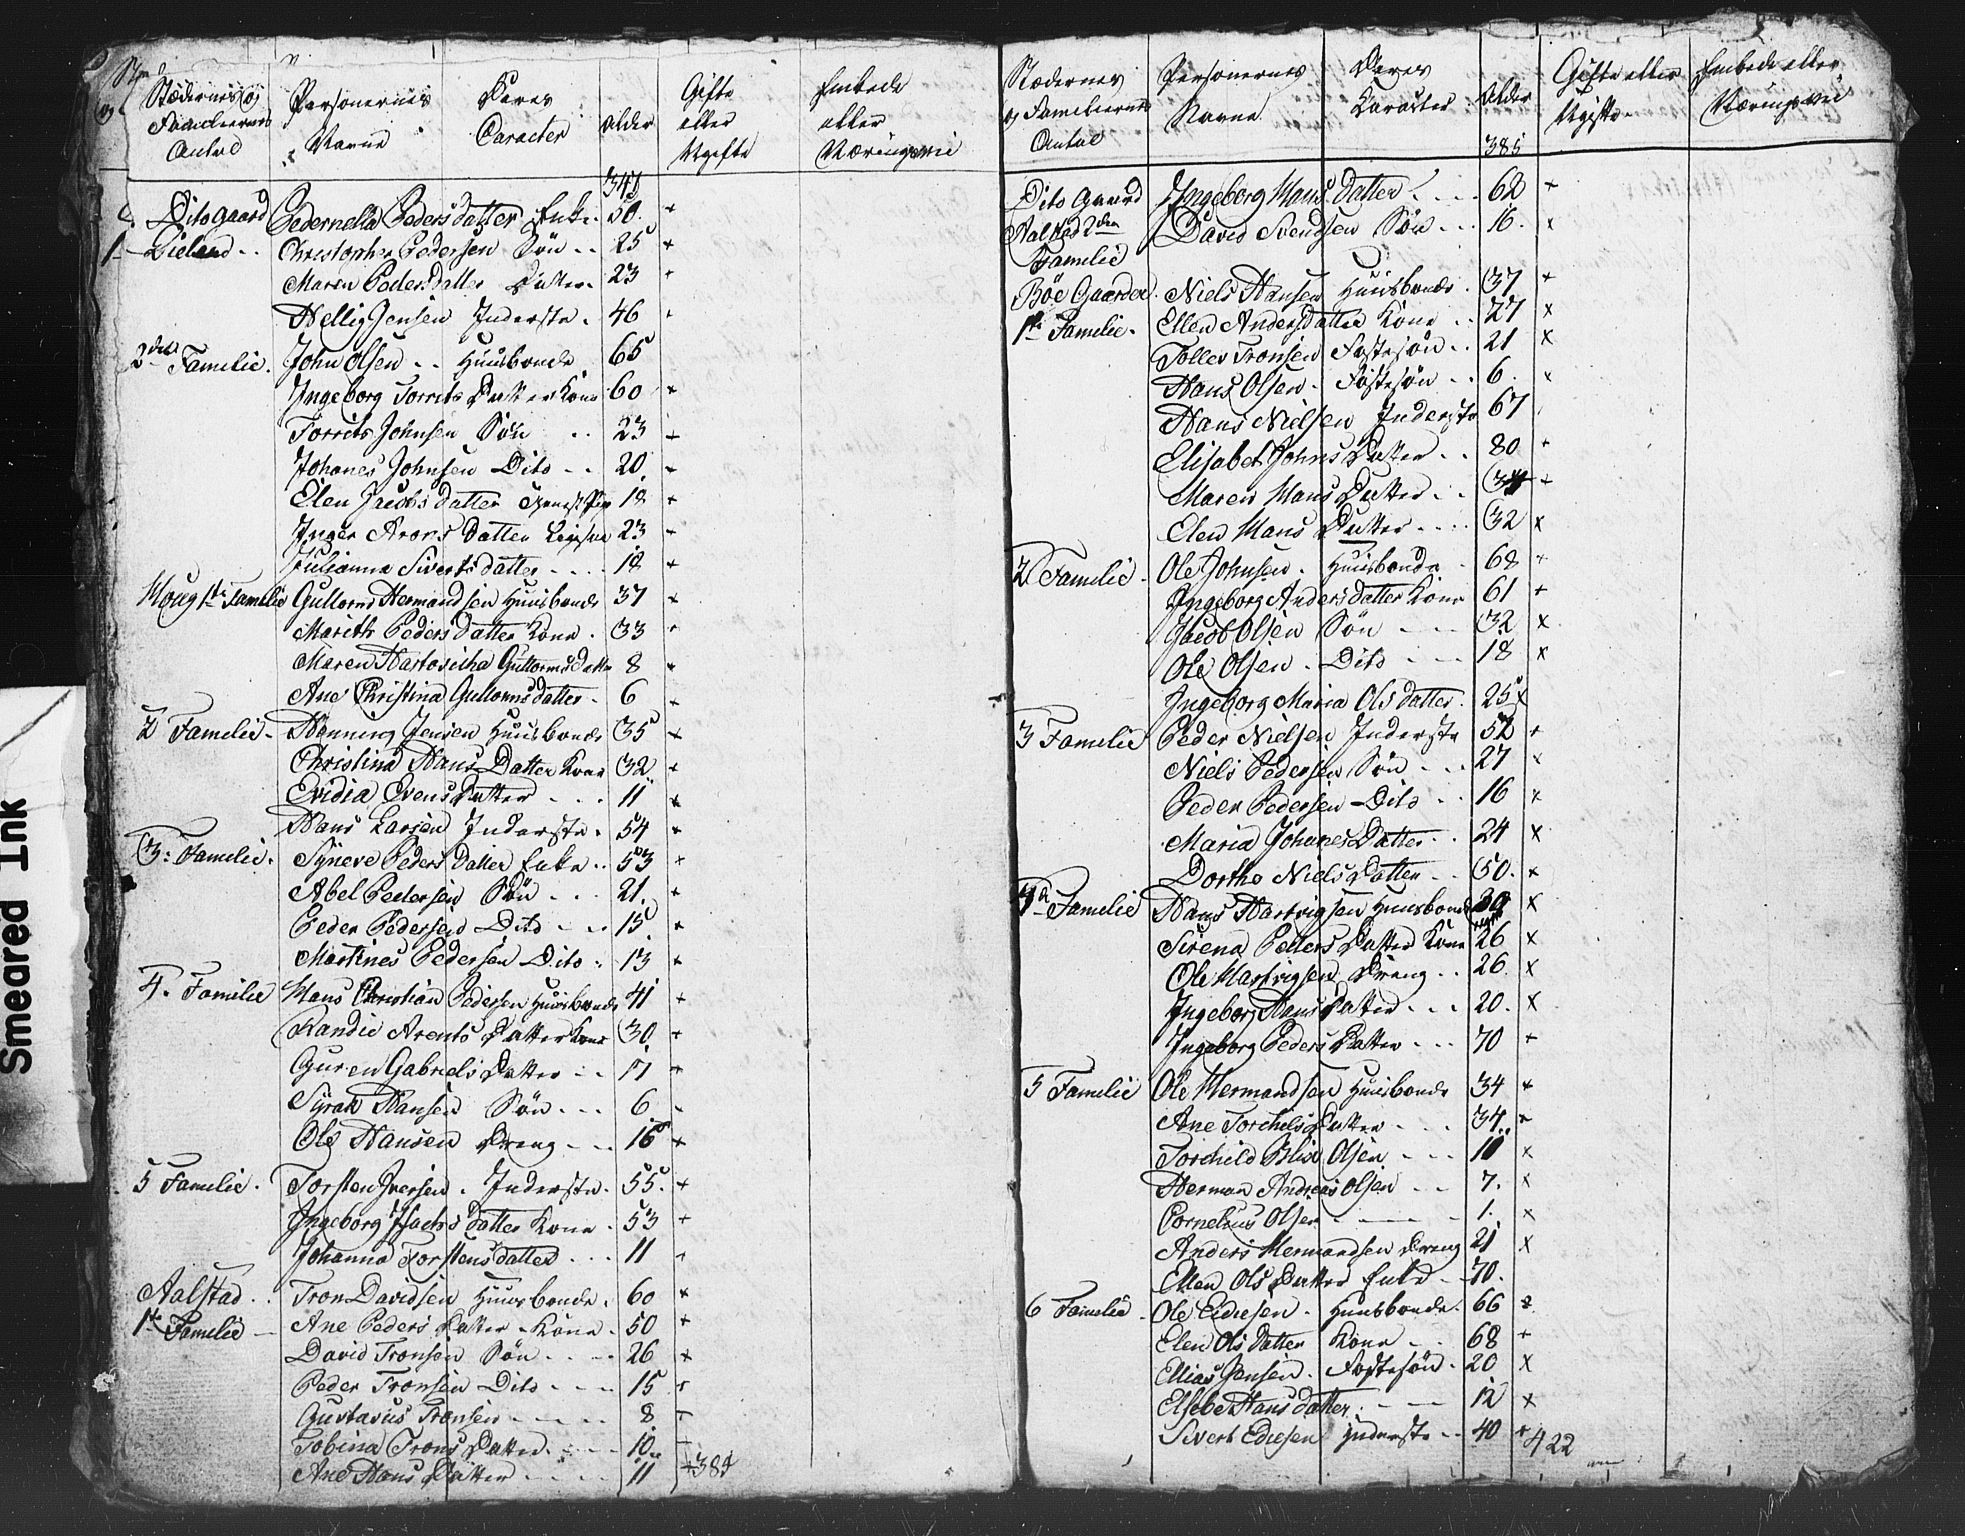 Stædernes og Familiernes Antal | Personernes Navne | Deres Caracter | Alder | Gifte eller Ugifte | Embede eller Næringsvei
347
Dito Gaard Pedernella Peders Datter Enke 50 +
1 Lieland Christopher Pedersen Søn 25 +
Maren Peders Datter Datter 23 +
Hellig Jensen Inderste 46
2den Familie John Olsen Huusbonde 65
Ingeborg Torrits Datter Kone 60 +
Torrits Johnsen Søn 23 +
Johanes Johnsen Dito 20 +
Elen Jacobs Datter 18 +
Inger Arons Datter 23 +
Julianna Siverts datter 18 +
Houg 1te Familie Guttorm Hermandsen Huusbonde 37 +
Marith Peders Datter Kone 33 +
Maren Guttorms Datter 8 +
Ane Christina Guttorms datter 6 +
2 Familie Henning Jensen Huusbonde 35 +
Christina Hans Datter Kone 32 +
Evidia Evens Datter 11 +
Hans Larsen Inderste 54 +
3: Familie Syneve Peders Datter Enke 53 +
Abel Pedersen Søn 21 +
Peder Pedersen Dito 15 +
Martines Pedersen Dito 13 +
4. Familie Hans Christian Pedersen Huusbonde 41 +
Randie Arents Datter Kone 30 +
Guren Gabriels Datter 17 +
Syrak Hansen Søn 6
Ole Hansen Dreng 16 +
5 Familie Torsten Iversen Inderste 55 +
Ingeborg Isachs datter Kone 53 +
Johanna Torstens datter 11 +
Aalstad Tron Davidsen Huusbonde 60 +
1te Familie Ane Peders Datter Kone 50 +
David Tronsen Søn 26 +
Peder Tronsen Dito 15 +
Gustavus Tronsen 8 +
Tobina Trons Datter 10
Ane Hans Datter 11 + 385
Stædernes og Familiernes Antal | Personernes Navne | Deres Karacter | Alder | Gifte eller Ugifte | Embede eller Næringsvei
385
Dito Gaard Ingeborg Hans Datter 62 +
Aalstad 2den David Svendsen Søn 16 x
Familie
Böe Gaarder Niels Hansen Huusbonde 37 +
1te Familie Ellen Anders datter Kone 27 x
Toller Tronsen Fostesøn 21 x
Hans Olsen Fostesøn 6 x
Hans Nielsen Inderste 67
Elisabet Johns Datter 80 +
Maren Hans Datter 34 +
Elen Hans Datter 32 x
2 Familie Ole Johnsen Huusbonde 68 +
Ingeborg Anders datter Kone 61 +
Jacob Olsen Søn 32 x
Ole Olsen Dito 18 x
Ingeborg Maria Ols datter 25 x
3 Familie Peder Nielsen Inderste 52 +
Niels Pedersen Søn 27 x
Peder Pedersen Dito 16 x
Maria Johanes Datter 24 x
Dorthe Niels Datter 50 x
4de Familie Hans Hartvigsen Huusbonde 30 x
Sirena Peders Datter Kone 26 x
Ole Hartvigsen Dreng 26 x
Ingeborg Hans Datter 20 x
Ingeborg Peders Datter 70 +
5 Familie Ole Hermandsen Huusbonde 34 +
Ane Torchels Datter 34 +
Torchild Blix Olsen 11 x
Herman Andreas Olsen 7 x
Cornelius Olsen 1 x
Anders Hermandsen Dreng 21 x
Ellen Ols Datter Enke 70
6 Familie Ole Ediesen Huusbonde 66 +
Elen Ols Datter Kone 68 +
Ellias Jensen Fostesøn 20 x
Elsebe Hans datter 12 x
Sivert Ediesen Inderste 40 + 422
Smeared Ink